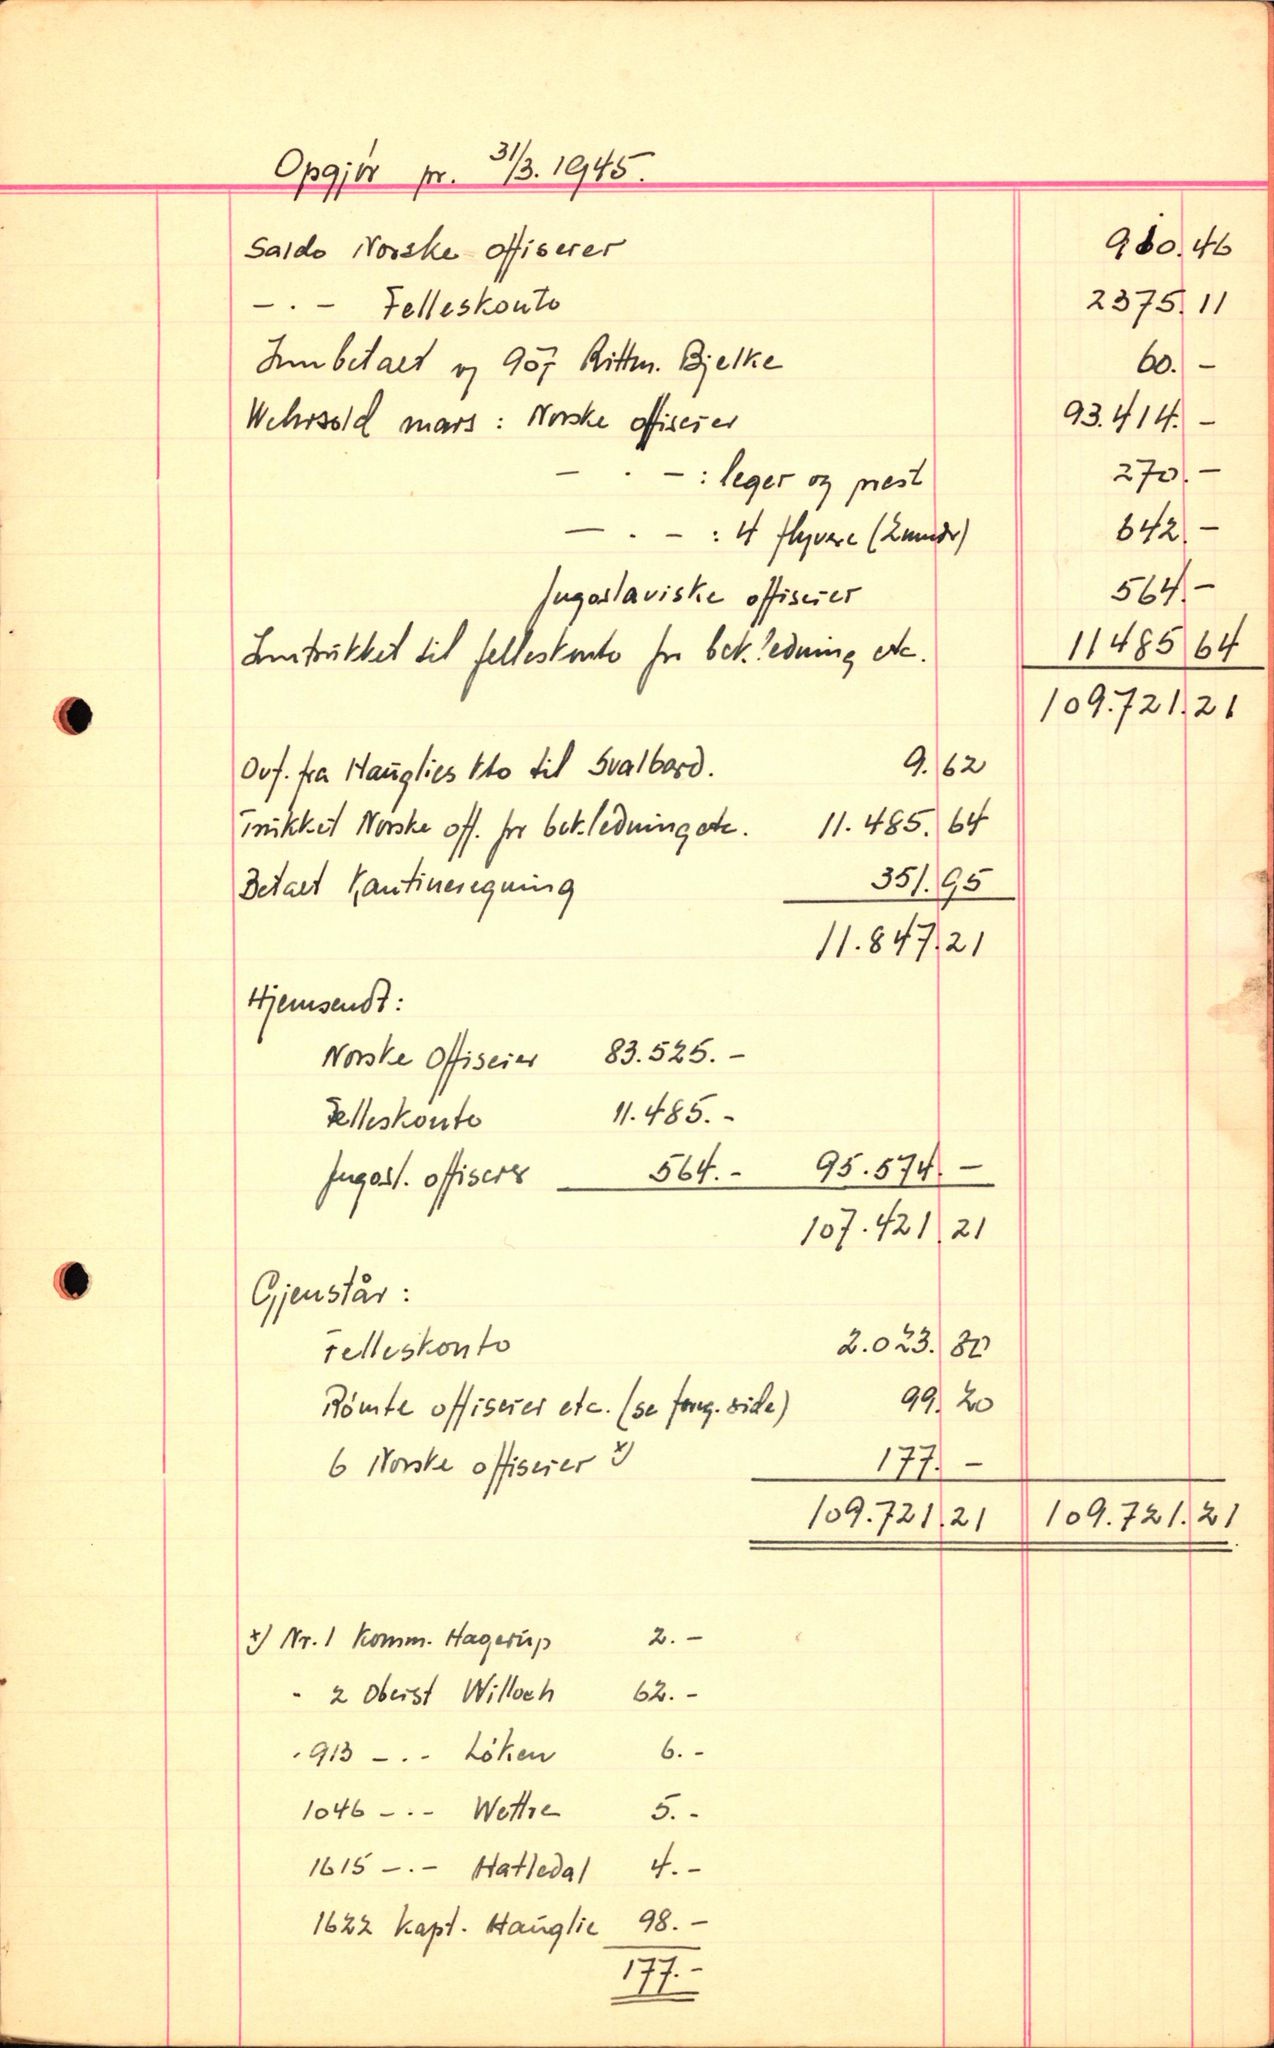 Opgjór pr. 31/3. 1945.
Saldo Norske offiserer 910.46
— . — Felleskonto 2375.11
Innbetalt og 907 Rittm. Bjelke 60. –
Wehrsold mars : Norske offiserer 93.414. –
— . — : leger og prest 270. –
— . — : 4 flyvere 642. –
Jugoslaviske offiserer 564. –
Inntrukket til felleskonto for bek.ledning etc. 11485 64
109.721.21
Ovf. fra Hauglies kto til Svalbard. 9.62
Trukket Norske off. for bek.ledning etc. 11.485.64
Betalt Kantineregning 351.95
11.847.21
Hjemsendt:
Norske Offiserer 83.525. –
Felleskonto 11.485. –
Jugosl. offiserer 564. – 95.574. –
107.421.21
Gjenstår :
Felleskonto 2.023.80
Rómte offiserer etc. (se foreg. side) 99.20
6 Norske offiserer x) 177. –
109.721.21 109.721.21
x) Nr. 1 Komm. Hagerup 2. –
- 2 Oberst Willoch 62. –
- 913 — . — Lóken 6. –
1046 — . — Wettre 5. –
1615 — . — Hatledal 4. –
1622 Kapt. Hauglie 98. –
177. –